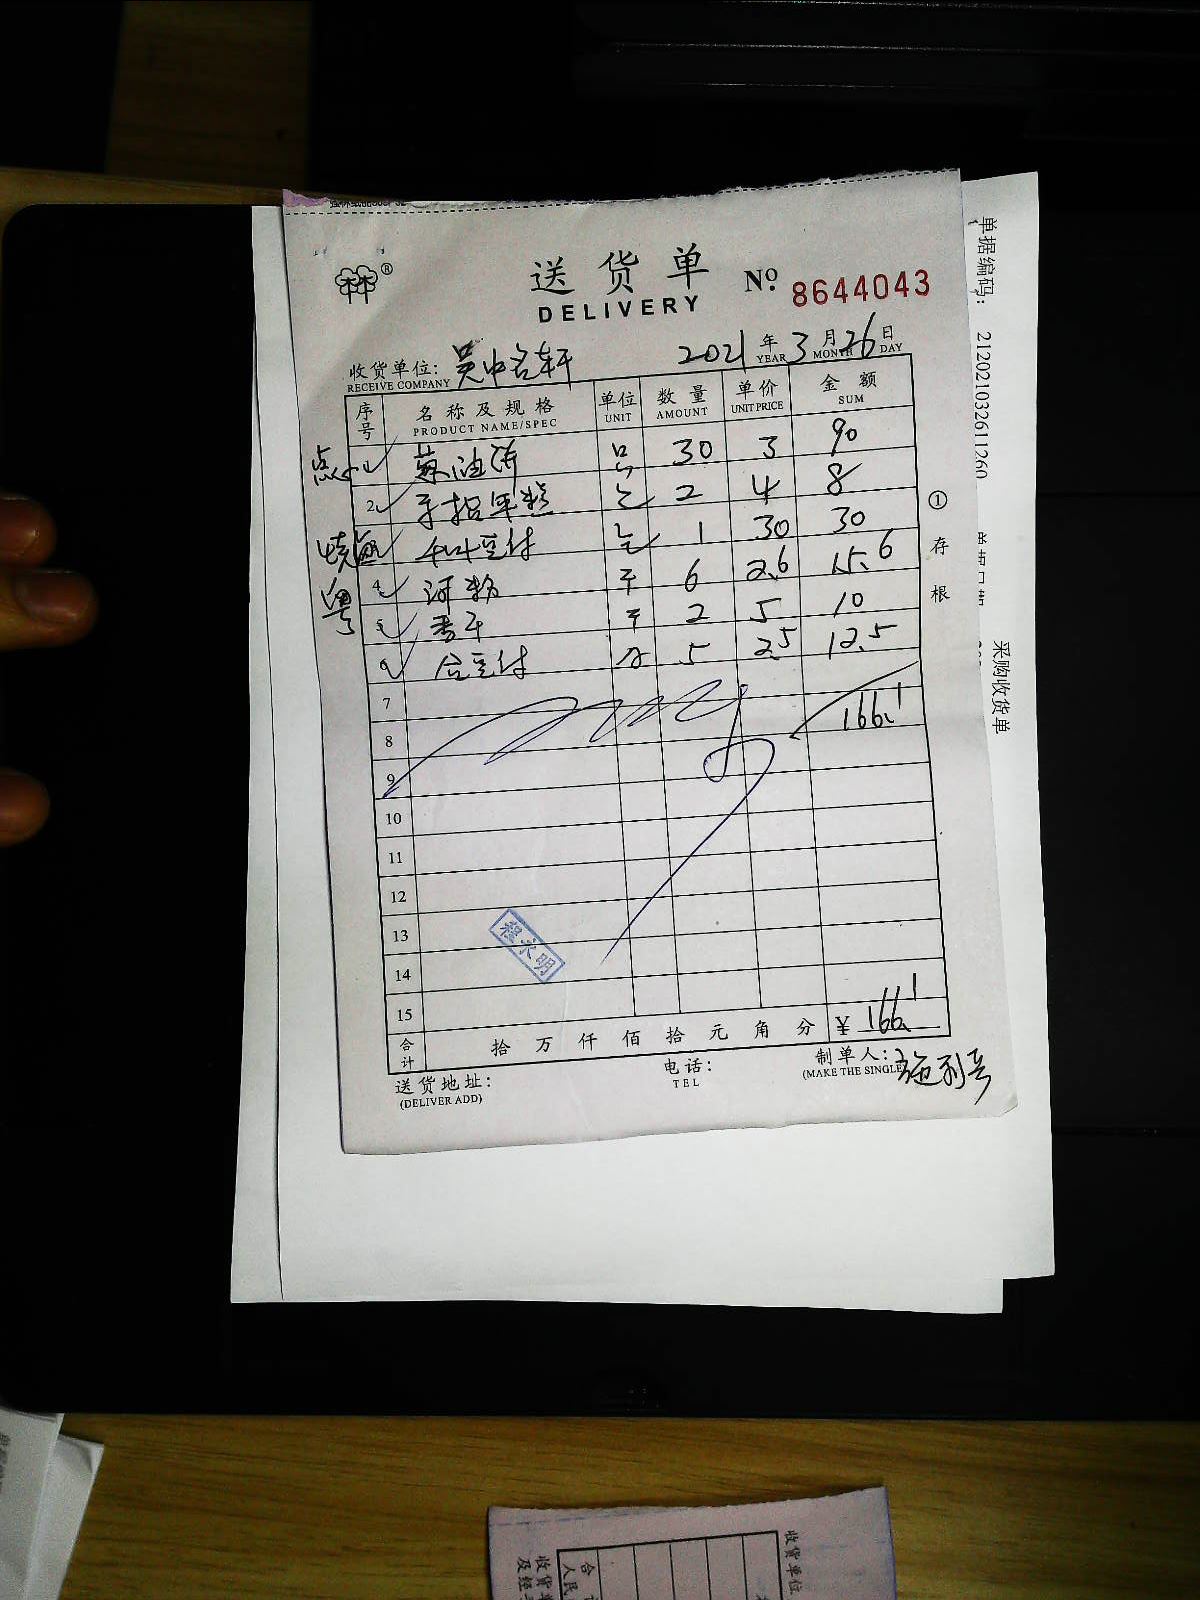 送货单
DELIVERY
No. 8644043
收货单位: 吴中名轩 2021 年 3 月 26 日
RECEIVE COMPANY YEAR MONTH DAY
序号 名称及规格 单位 数量 单价 金额
PRODUCT NAME/SPEC UNIT AMOUNT UNIT PRICE SUM
点心 1 苏油饼 只 30 3 90
2 2 4 8
3 豆付 1 30 30
粤 4 河粉 斤 6 2.6 15.6
5 香干 斤 2 5 10
6 合豆付 5 2.5 12.5
7
166.1
8
9
10
11
12
13
14
15
程六明
合计 拾 万 仟 佰 拾 元 角 分 ¥ 166.1
送货地址: 电话: 制单人:
(DELIVER ADD) TEL (MAKE THE SINGLE)
① 存根
单据编码: 212021032611260
采购收货单
收货单位